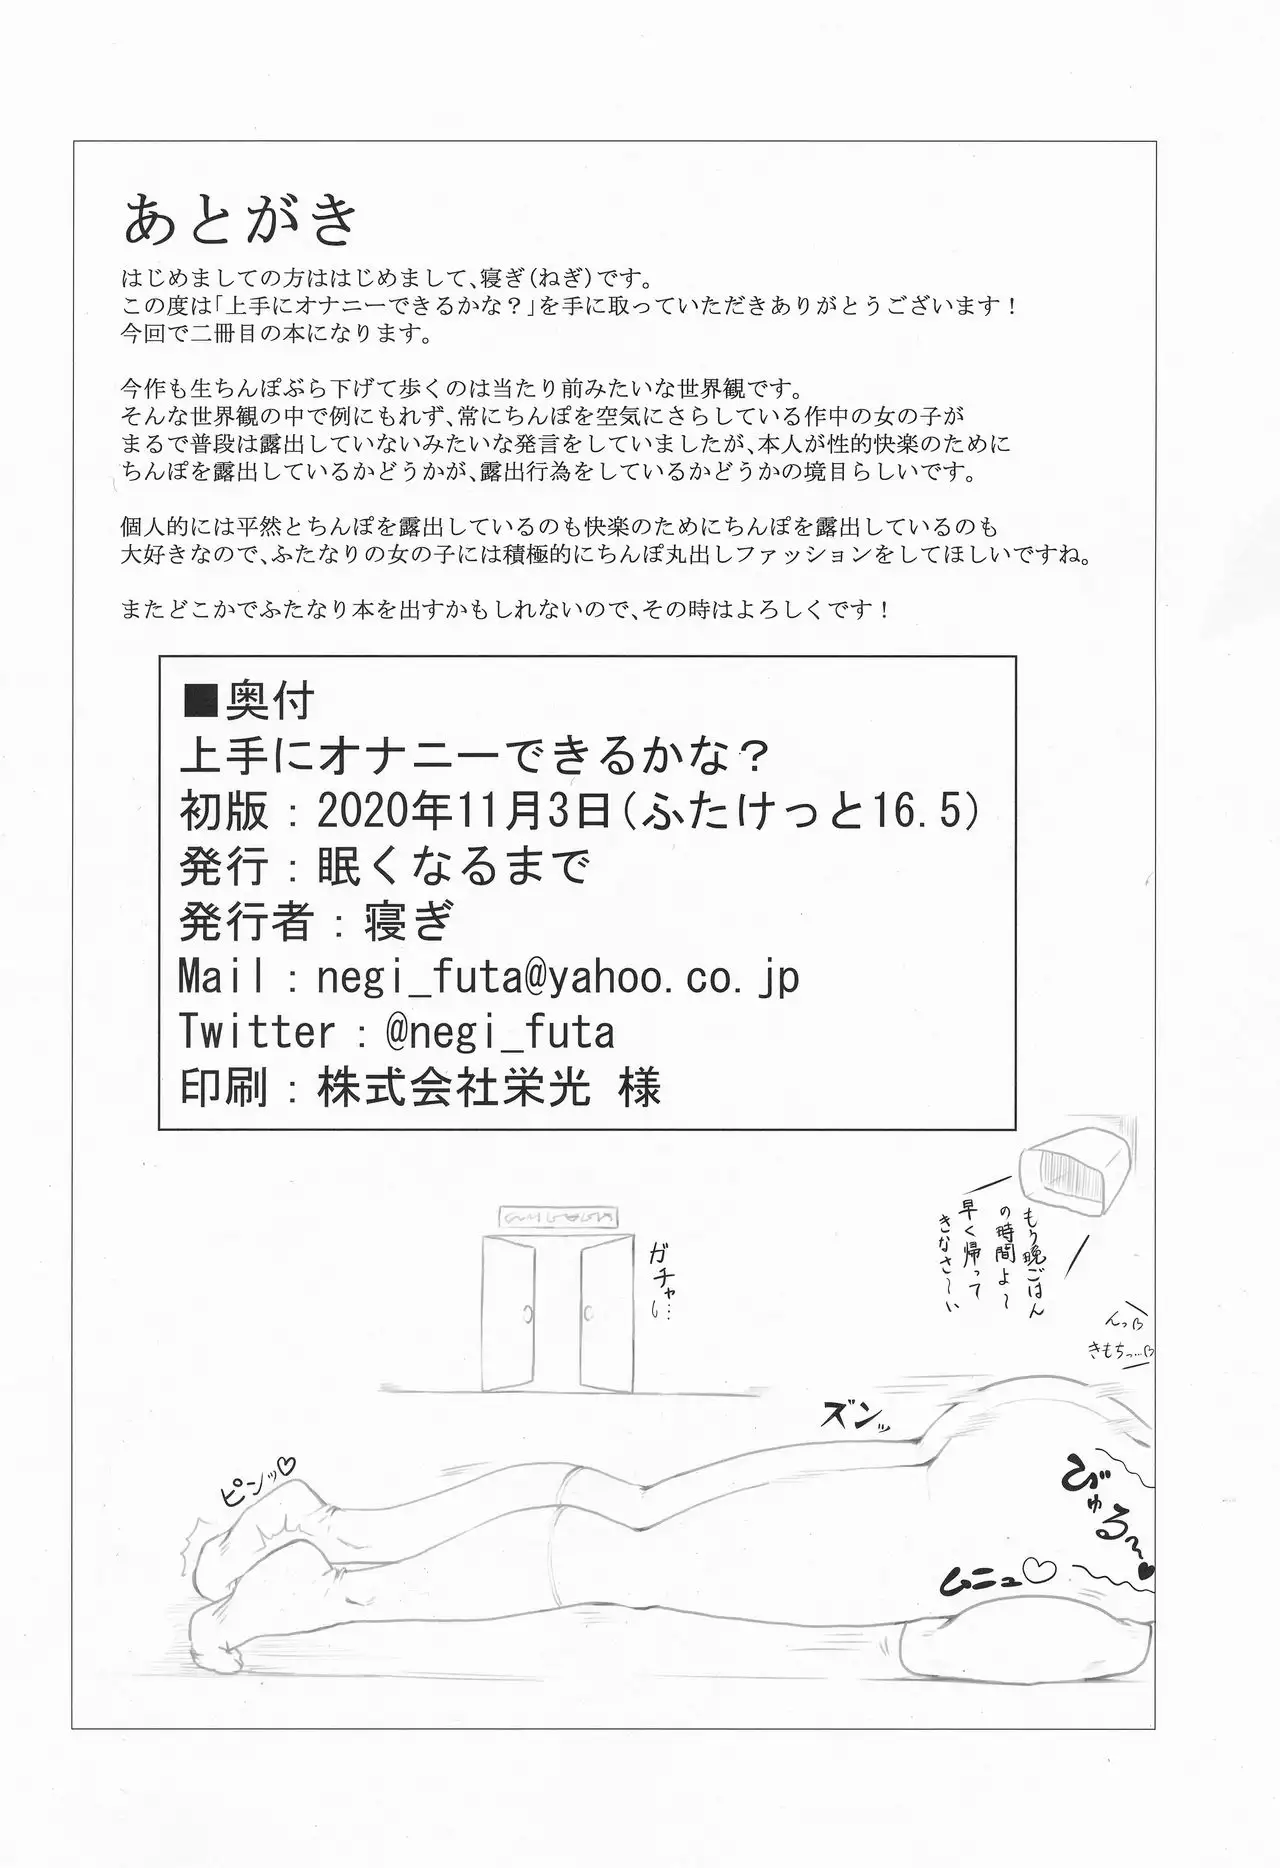 あとがき
はじめましての方ははじめまして、寝ぎ(ねぎ)です。
この度は「上手にオナニーできるかな？」を手に取っていただきありがとうございます！
今回で二冊目の本になります。
今作も生ちんぽぶら下げて歩くのは当たり前みたいな世界観です。
そんな世界観の中で例にもれず、常にちんぽを空気にさらしている作中の女の子が
まるで普段は露出していないみたいな発言をしていましたが、本人が性的快楽のために
ちんぽを露出しているかどうかが、露出行為をしているかどうかの境目らしいです。
個人的には平然とちんぽを露出しているのも快楽のためにちんぽを露出しているのも
大好きなので、ふたなりの女の子には積極的にちんぽ丸出しファッションをしてほしいですね。
またどこかでふたなり本を出すかもしれないので、その時はよろしくです！
■奥付
上手にオナニーできるかな？
初版：2020年11月3日(ふたけっと16.5)
発行：眠くなるまで
発行者：寝ぎ
Mail：negi_futa@yahoo.co.jp
Twitter：@negi_futa
印刷：株式会社栄光 様
もう晩ごはん
の時間よ～
早く帰って
きなさ～い
ガチャい…
んっ♡
きもちっ…♡
ズンッ
ピンッ♡
びゅる～♥
ムニュ♡